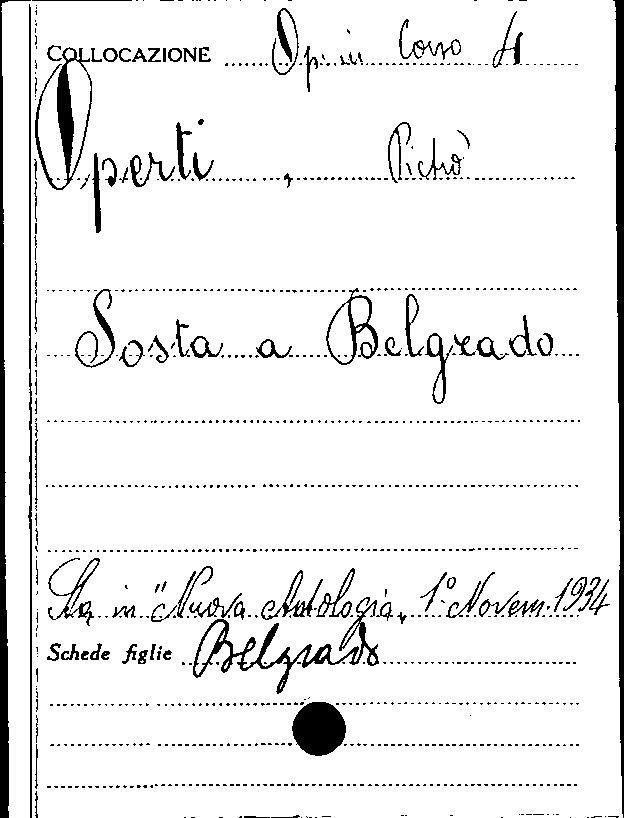 COLLOCAZIONE Op. in Corso 4
Operti, Pietro
Sosta a Belgrado
Sta in "Nuova Antologia, 1° Novem. 1934
Schede figlie Belgrado